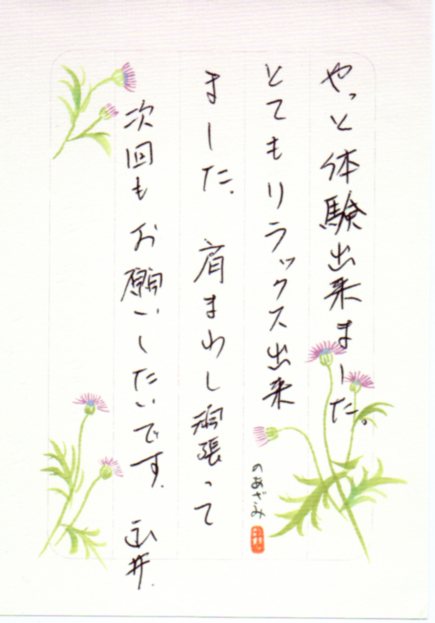 やっと体験出来ました。
とてもリラックス出来
ました。肩まわし頑張って
次回もお願いしたいです。
のあざみ